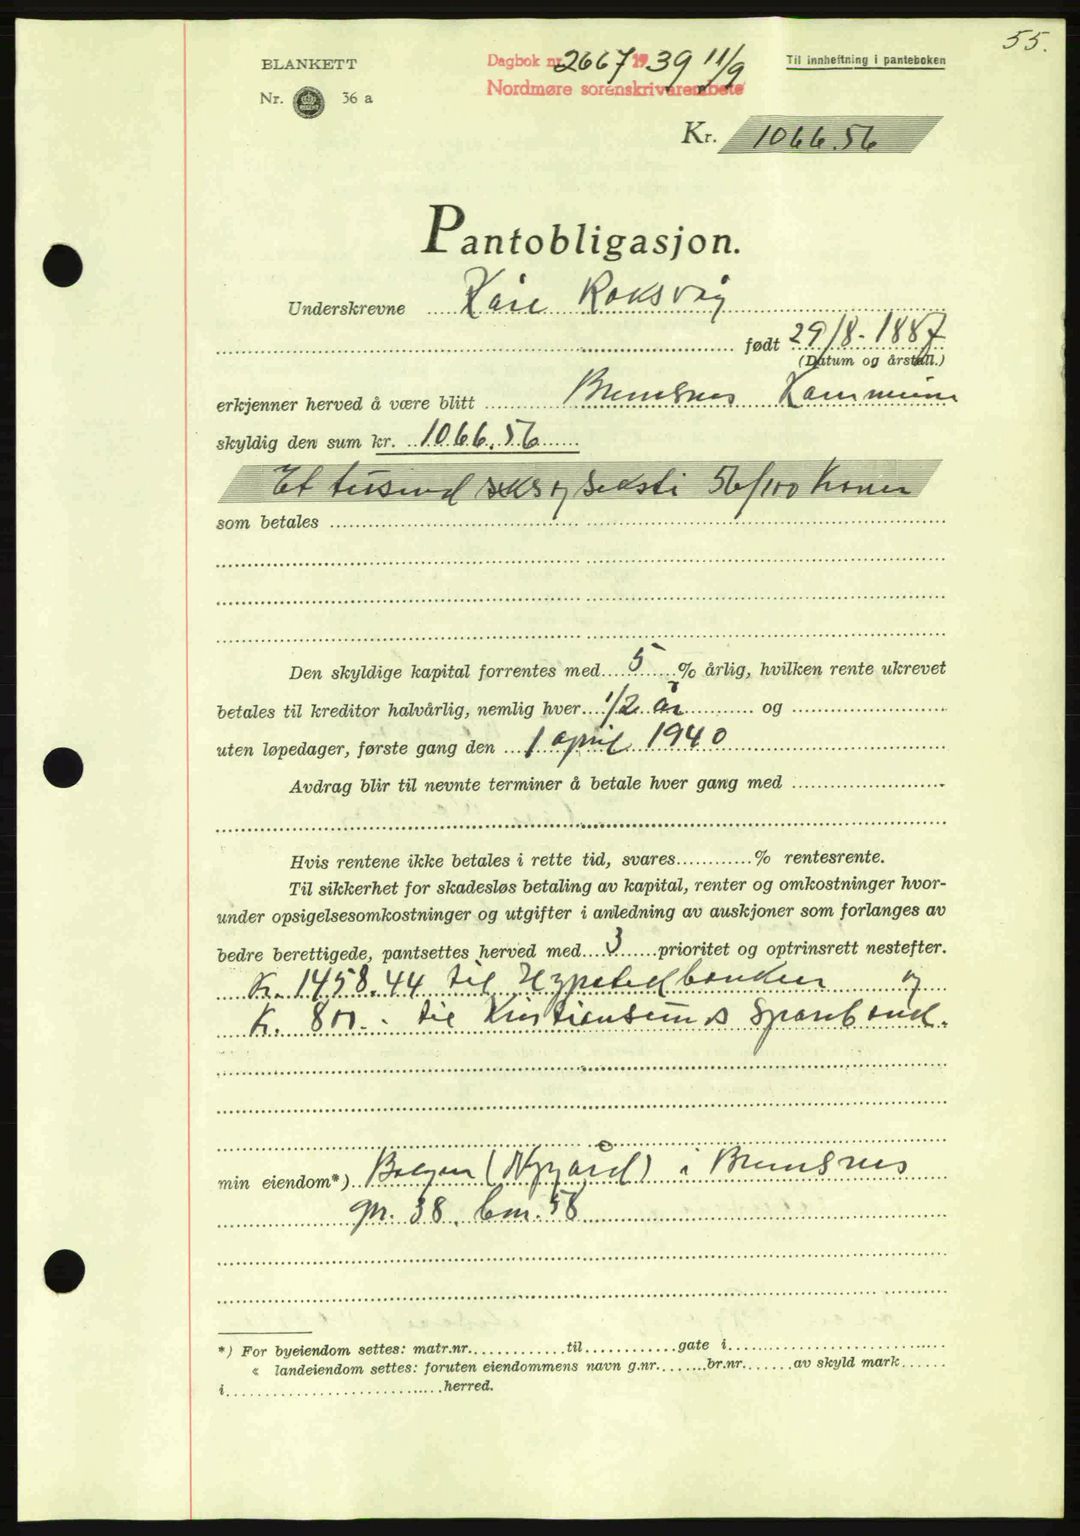 55.
BLANKETT
Nr. 36 a
Dagbok nr. 2667 1939 11/9
Nordmøre sorenskriverembete
Til innheftning i panteboken
Kr. 1066.56
Pantobligasjon.
Underskrevne Kåre Roksvåg
født 29/8-1887
(Datum og årstall.)
erkjenner herved å være blitt Bremsnes Kommune
skyldig den sum kr. 1066.56
Et tusind seksogseksti 56/100 Kroner
som betales
Den skyldige kapital forrentes med 5 % årlig, hvilken rente ukrevet
betales til kreditor halvårlig, nemlig hver 1/2 år og
uten løpedager, første gang den 1 april 1940
Avdrag blir til nevnte terminer å betale hver gang med
Hvis rentene ikke betales i rette tid, svares % rentesrente.
Til sikkerhet for skadesløs betaling av kapital, renter og omkostninger hvor-
under opsigelsesomkostninger og utgifter i anledning av auskjoner som forlanges av
bedre berettigede, pantsettes herved med 3 prioritet og optrinsrett nestefter.
Kr. 1458.44 til Hypotekbanken og
Kr. 800.- til Kristiansunds Sparebank.
min eiendom*) Bolgen (Nygård) i Bremsnes
gnr. 38. bnr. 58
*) For byeiendom settes: matr.nr. til gate i
« landeiendom settes: foruten eiendommens navn g.nr. br.nr. av skyld mark
i herred.